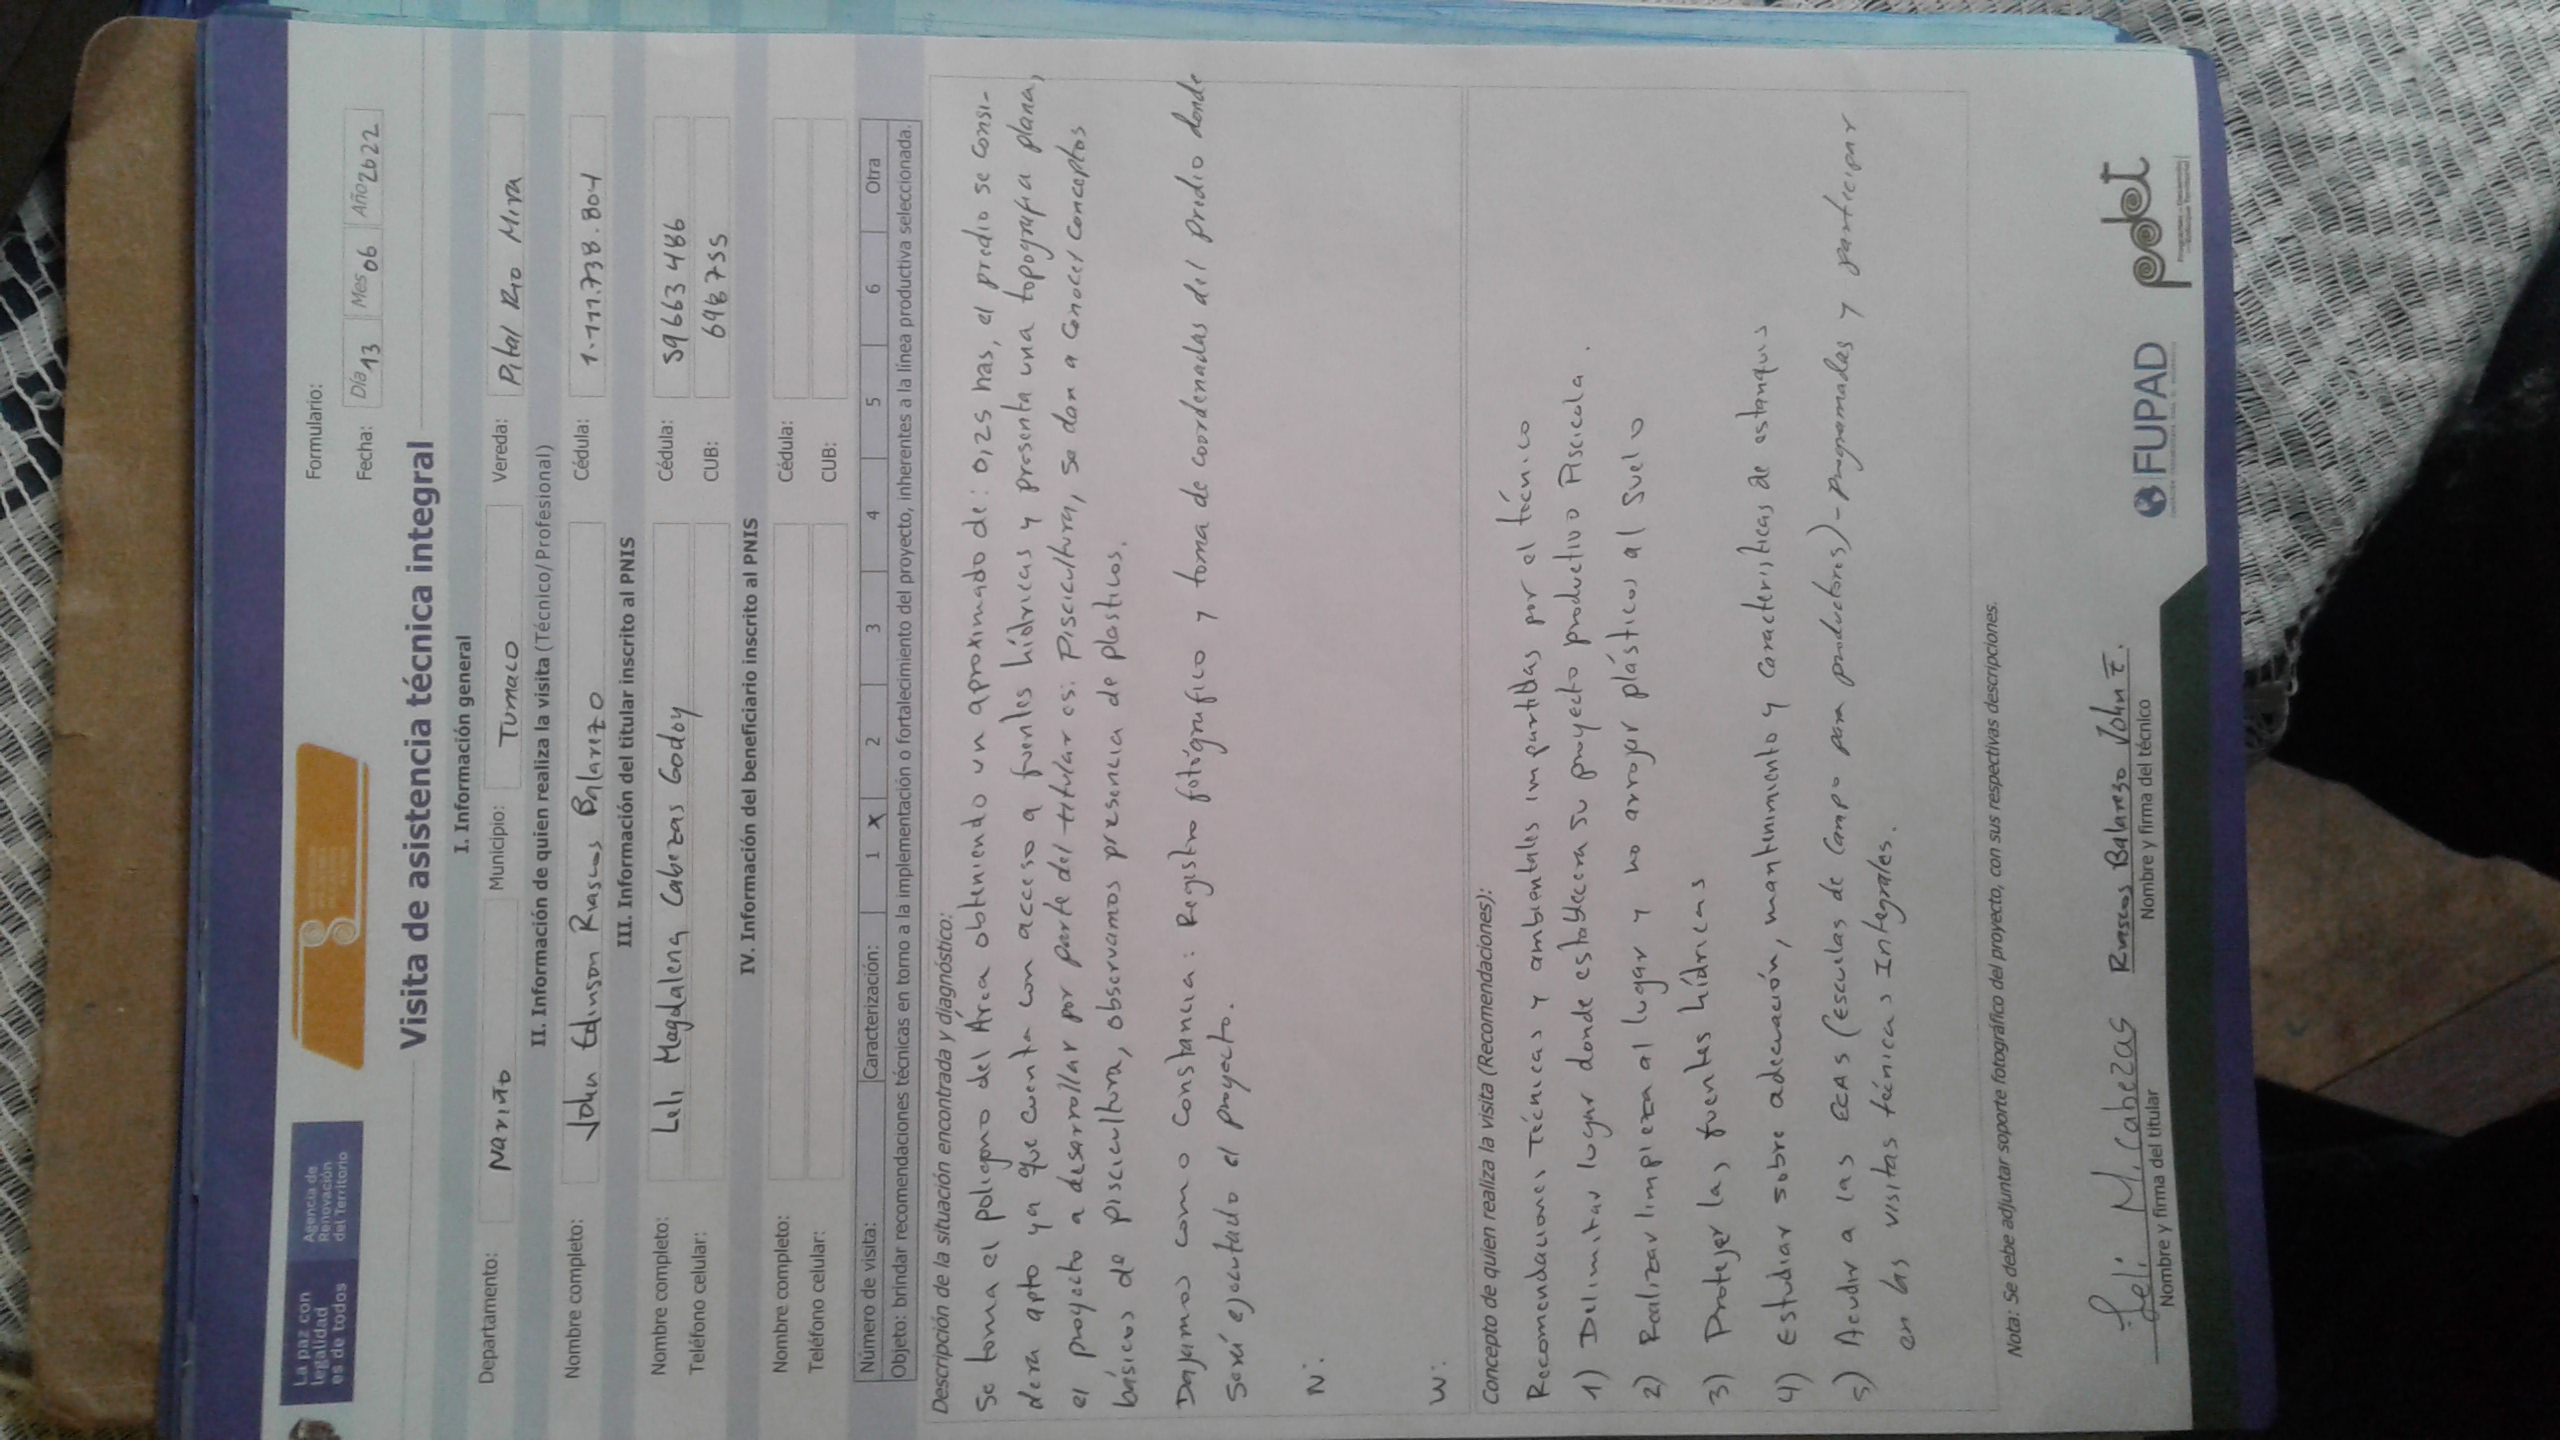 La paz con
legalidad
es de todos
Agencia de
Renovación
del Territorio
Formulario:
Fecha: Día 13 Mes 06 Año 2022
Visita de asistencia técnica integral
I. Información general
Departamento: Nariño Municipio: Tumaco Vereda: Pital Rio Mira
II. Información de quien realiza la visita (Técnico/Profesional)
Nombre completo: John Edinson Riascos Balarezo Cédula: 1.111.738.804
III. Información del titular inscrito al PNIS
Nombre completo: Leli Magdalena Cabezas Godoy Cédula: 59663486
Teléfono celular: CUB: 698755
IV. Información del beneficiario inscrito al PNIS
Nombre completo: Cédula:
Teléfono celular: CUB:
Número de visita: Caracterización: 1 X 2 3 4 5 6 Otra
Objeto: brindar recomendaciones técnicas en torno a la implementación o fortalecimiento del proyecto, inherentes a la línea productiva seleccionada.
Descripción de la situación encontrada y diagnóstico:
Se toma el poligono del Área obteniendo un aproximado de: 0,25 has, el predio se consi-
dera apto ya que cuenta con acceso a fuentes hídricas y presenta una topografia plana,
el proyecto a desarrollar por parte del titular es: Piscicultura, se dan a conocer conceptos
básicos de piscicultura, observamos presencia de plasticos.
Dejamos como constancia: Registro fotógrafico y toma de coordenadas del predio donde
será ejecutado el proyecto.
N:
W:
Concepto de quien realiza la visita (Recomendaciones):
Recomendaciones Técnicas y ambientales impartidas por el técnico
1) Delimitar lugar donde establecera su proyecto productivo Piscicola.
2) Realizar limpieza al lugar y no arrojar plásticos al suelo
3) Protejer las fuentes hídricas
4) Estudiar sobre adecuación, mantenimiento y caracteristicas de estanques
5) Acudir a las ECAS (escuelas de Campo para productores) - programadas y participar
en las visitas técnicas Integrales.
Nota: Se debe adjuntar soporte fotográfico del proyecto, con sus respectivas descripciones.
Leli M. Cabezas Riascos Balarezo John E.
Nombre y firma del titular Nombre y firma del técnico
FUPAD
pdet